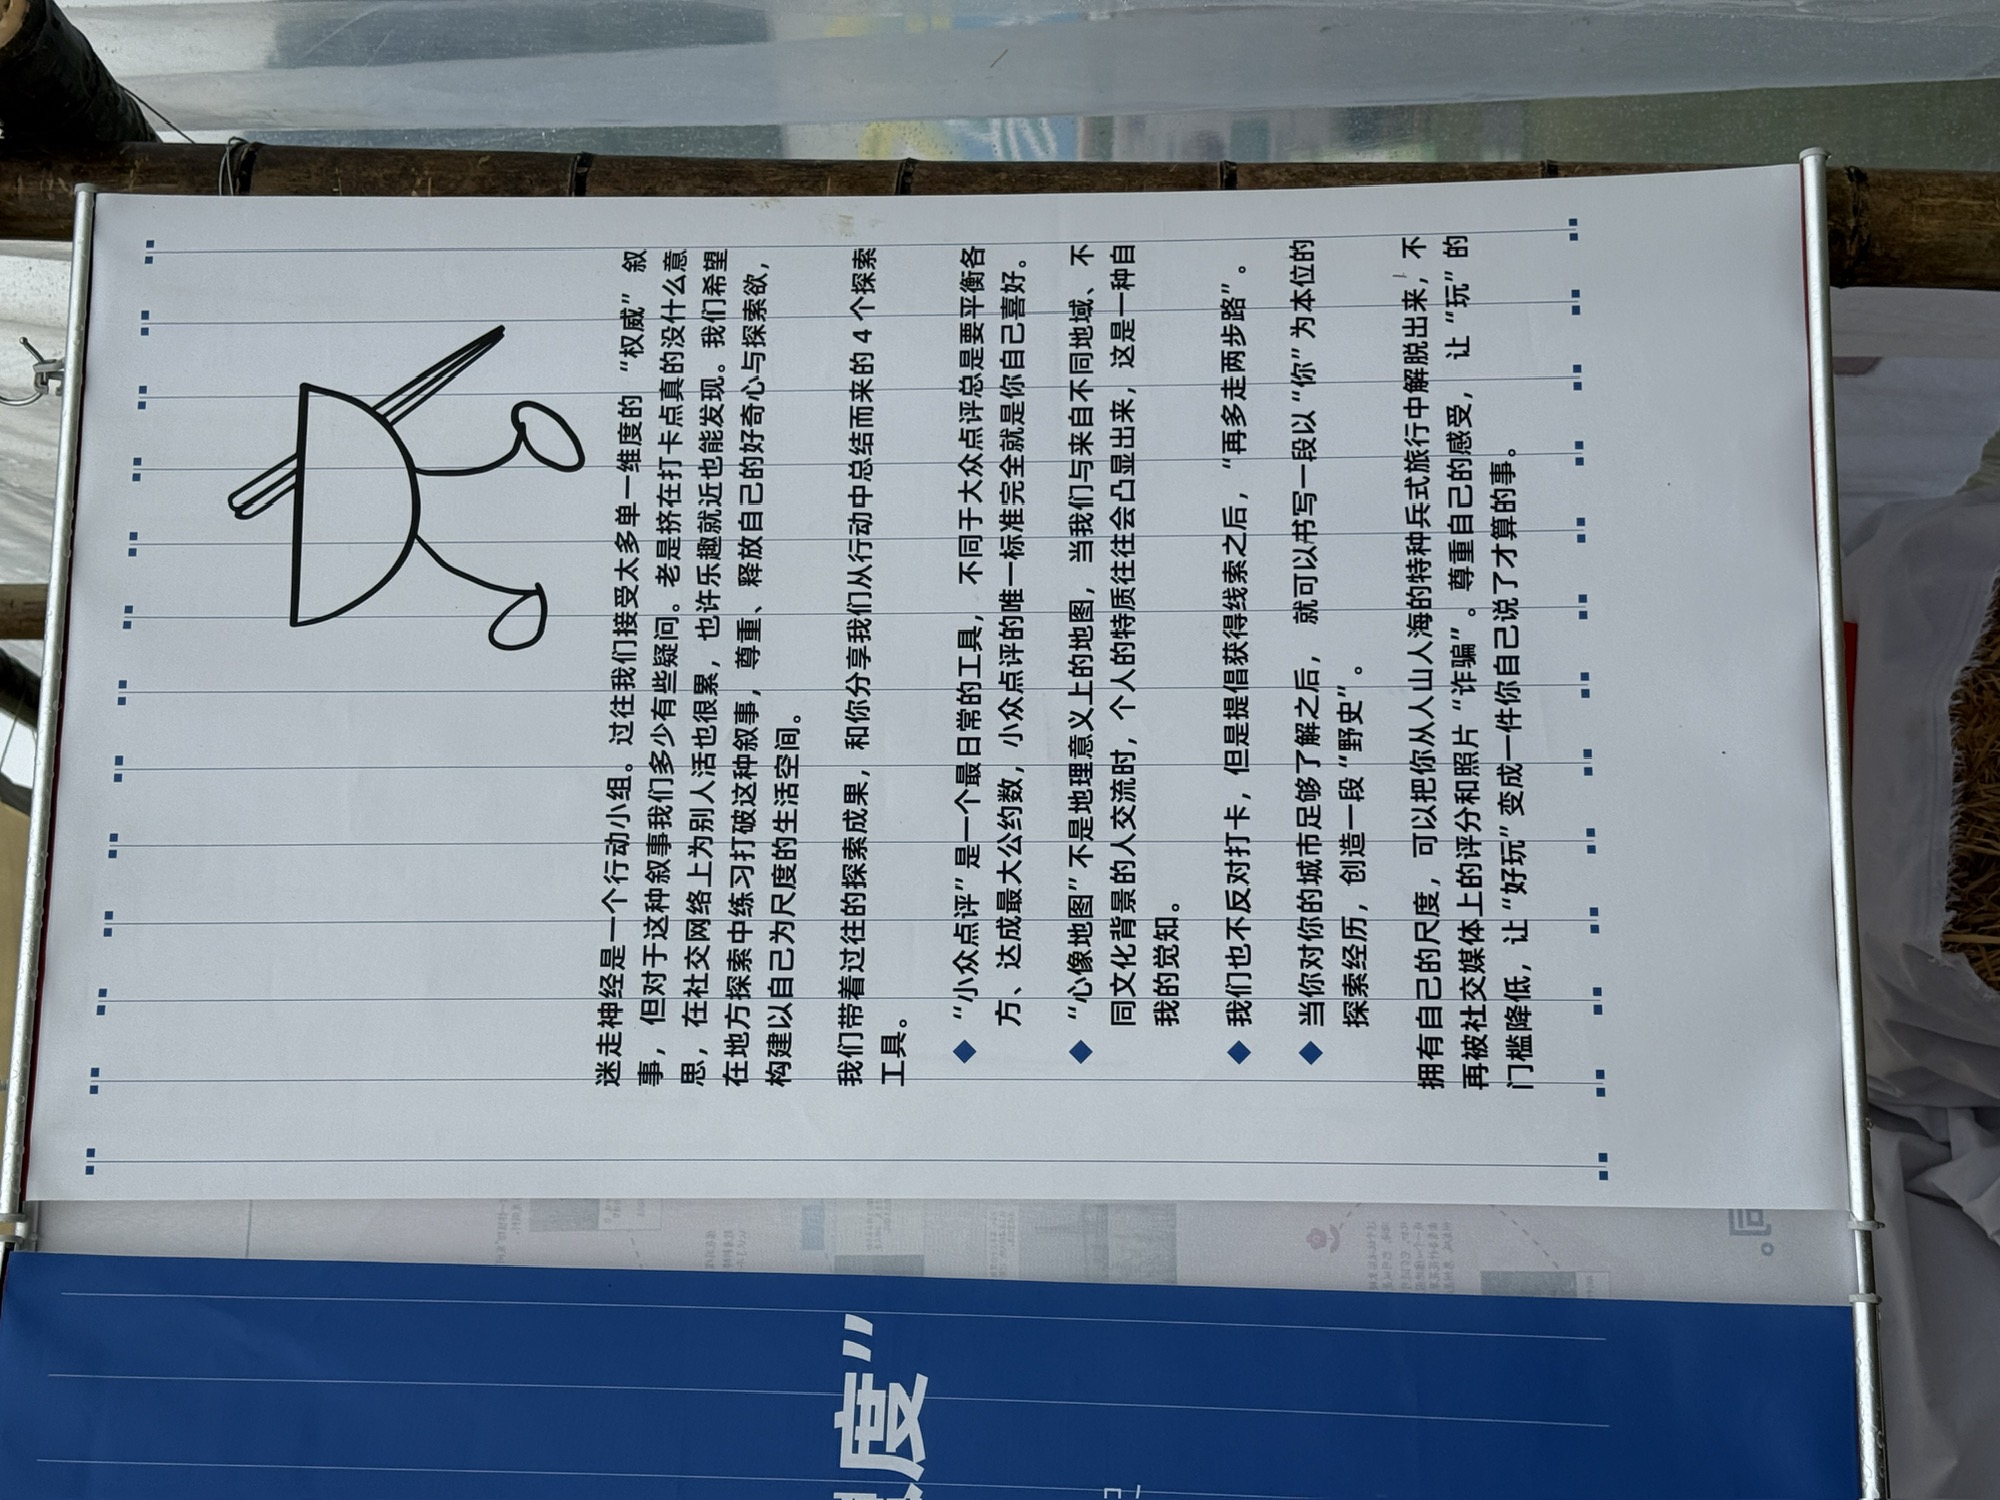 迷走神经是一个行动小组。过往我们接受太多单一维度的“权威”叙
事，但对于这种叙事我们多少有些疑问。老是挤在打卡点真的没什么意
思，在社交网络上为别人活也很累，也许乐趣就近也能发现。我们希望
在地方探索中练习打破这种叙事，尊重、释放自己的好奇心与探索欲，
构建以自己为尺度的生活空间。
我们带着过往的探索成果，和你分享我们从行动中总结而来的 4 个探索
工具。
◆ “小众点评”是一个最日常的工具，不同于大众点评总是要平衡各
方、达成最大公约数，小众点评的唯一标准完全就是你自己喜好。
◆ “心像地图”不是地理意义上的地图，当我们与来自不同地域、不
同文化背景的人交流时，个人的特质往往会凸显出来，这是一种自
我的觉知。
◆ 我们也不反对打卡，但是提倡获得线索之后，“再多走两步路”。
◆ 当你对你的城市足够了解之后，就可以书写一段以“你”为本位的
探索经历，创造一段“野史”。
拥有自己的尺度，可以把你从人山人海的特种兵式旅行中解脱出来，不
再被社交媒体上的评分和照片“诈骗”。尊重自己的感受，让“玩”的
门槛降低，让“好玩”变成一件你自己说了才算的事。
度”